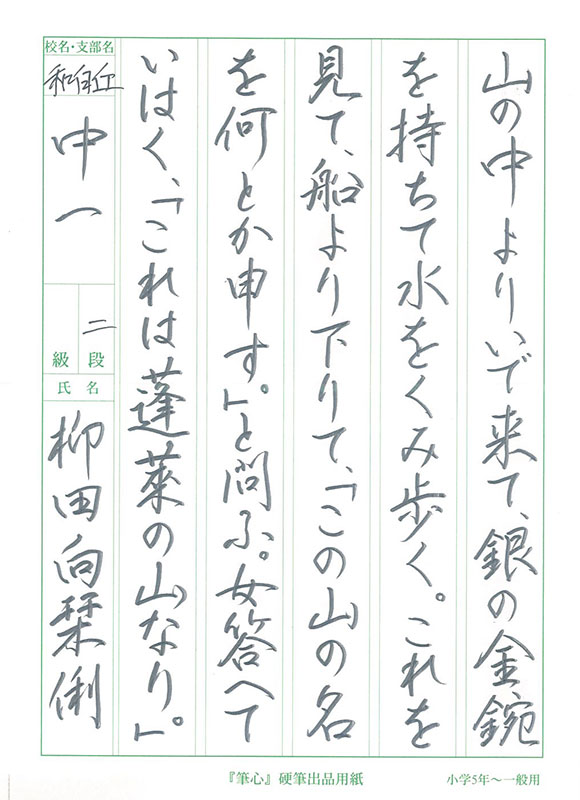 山の中よりいで来て、銀の金鋺
を持ちて水をくみ歩く。これを
見て、船より下りて、「この山の名
を何とか申す。」と問ふ。女答へて
いはく、「これは蓬萊の山なり」。
校名・支部名
中一
二
段
級
氏名
柳田向栞俐
『筆心』硬筆出品用紙
小学5年～一般用